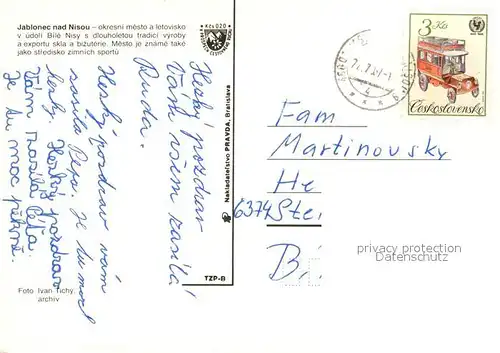 Jablonec nad Nisou – okresní město a letovisko
v údolí Bílé Nisy s dlouholetou tradicí výroby
a exportu skla a bižutérie. Město je známé také
jako středisko zimních sportů
Kčs 0,20
Hezký pozdrav
Vám všem zasílá
Ruda.
Hezký pozdrav vám
zasílá Pepa. Je tu moc
hezky. Hezký pozdrav
Vám zasílá Péťa.
Je tu moc pěkně.
Foto Ivan Tichý,
archív
Nakladatelství PRAVDA, Bratislava
TZP-B
3 Kčs
Československo
Fam
Martinovsky
He
6374 Ste
B
privacy protection
Datenschutz